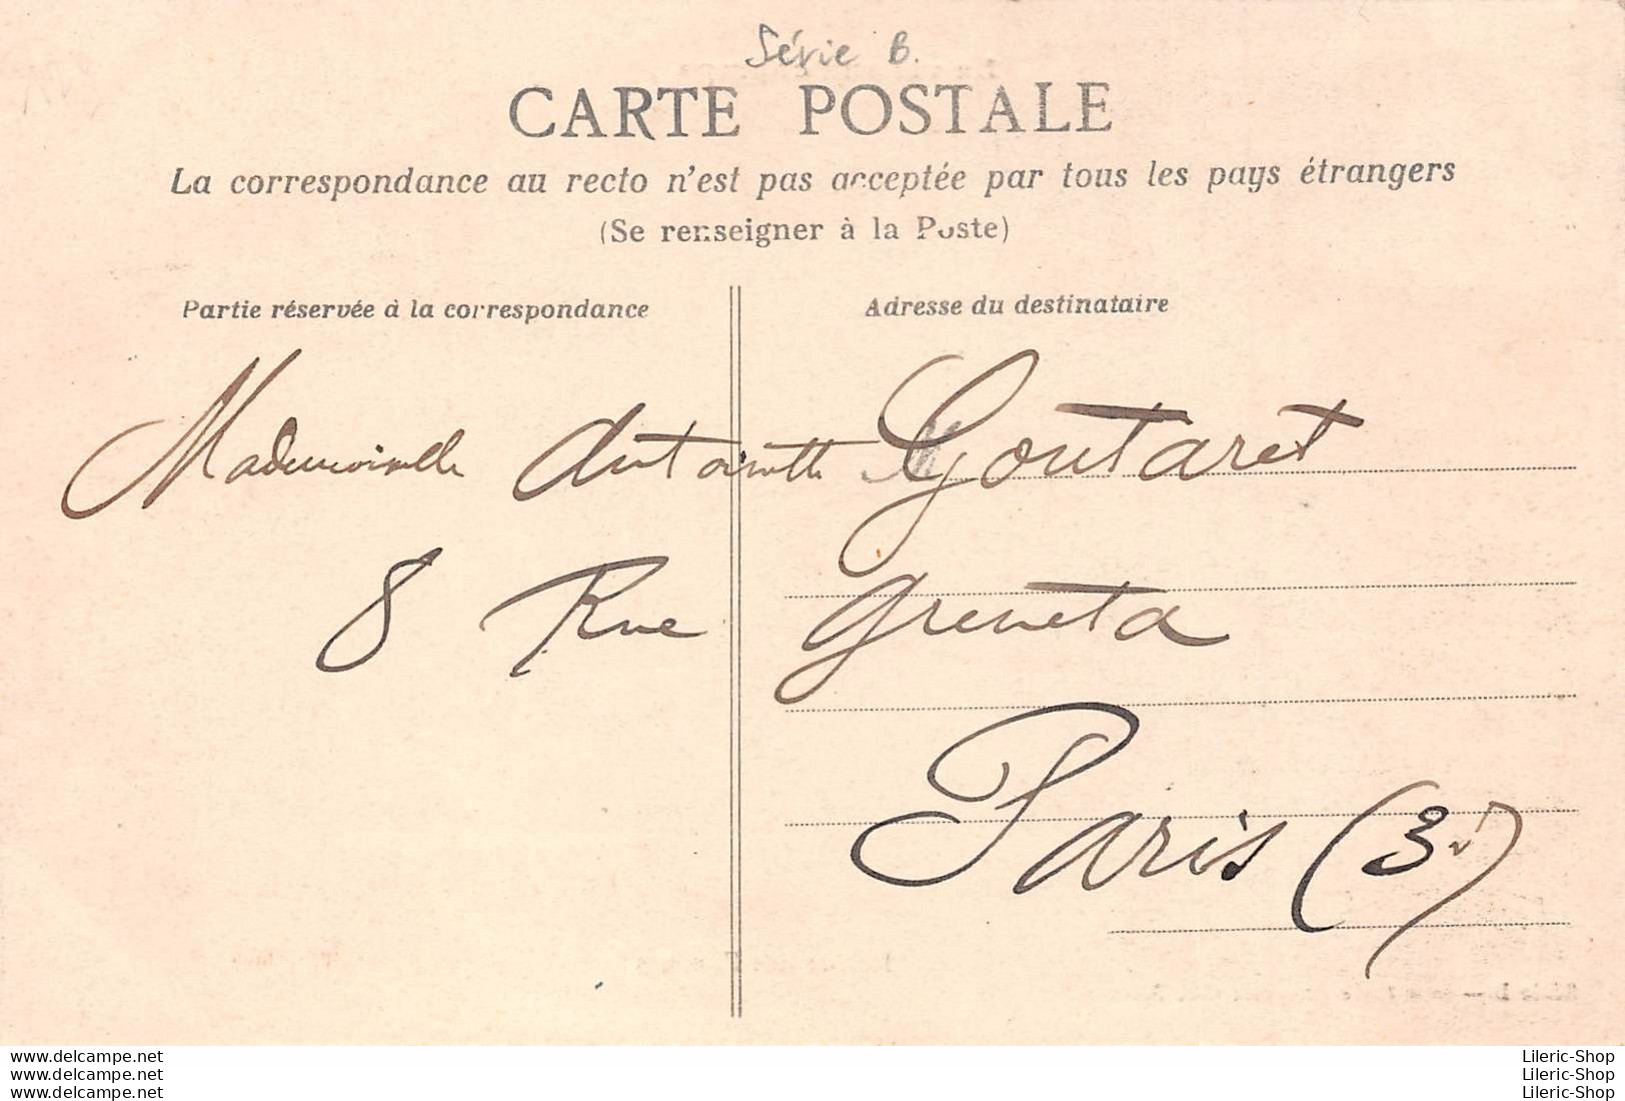 Série B.
CARTE POSTALE
La correspondance au recto n'est pas acceptée par tous les pays étrangers
(Se renseigner à la Poste)
Partie réservée à la correspondance
Adresse du destinataire
Mademoiselle Antoinette Goutaret
8 Rue Greneta
Paris (3e)
www.delcampe.net
www.delcampe.net
www.delcampe.net
Lileric-Shop
Lileric-Shop
Lileric-Shop